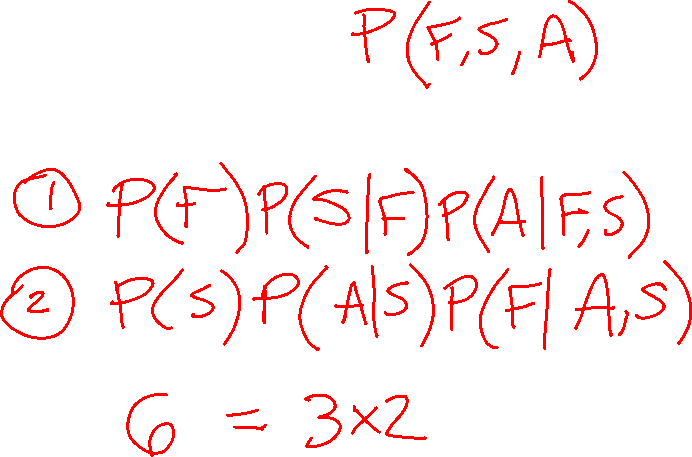 P(F,S,A)
① P(F)P(S|F)P(A|F,S)
② P(S)P(A|S)P(F|A,S)
6 = 3×2